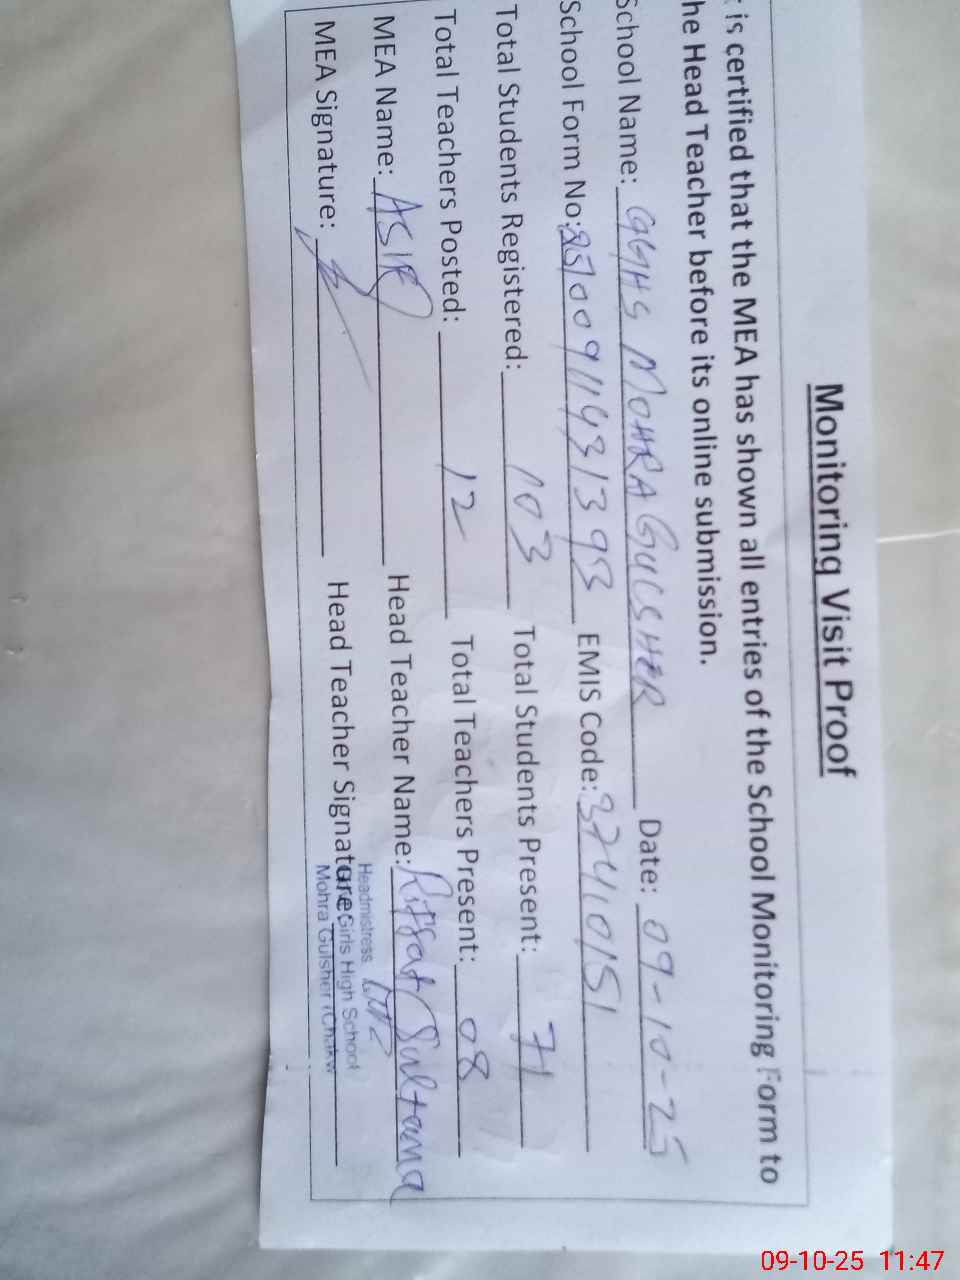 Monitoring Visit Proof
t is certified that the MEA has shown all entries of the School Monitoring Form to
he Head Teacher before its online submission.
School Name: GGHS MOHRA GULSHER Date: 09-10-25
School Form No: 2510091143 1393 EMIS Code: 37410151
Total Students Registered: 103 Total Students Present: 71
Total Teachers Posted: 12 Total Teachers Present: 08
MEA Name: ASIF Head Teacher Name: Riffat Sultana
MEA Signature: Head Teacher Signature:
Headmistress
Girls High School
Mohra Gulsher (Chakw
09-10-25 11:47